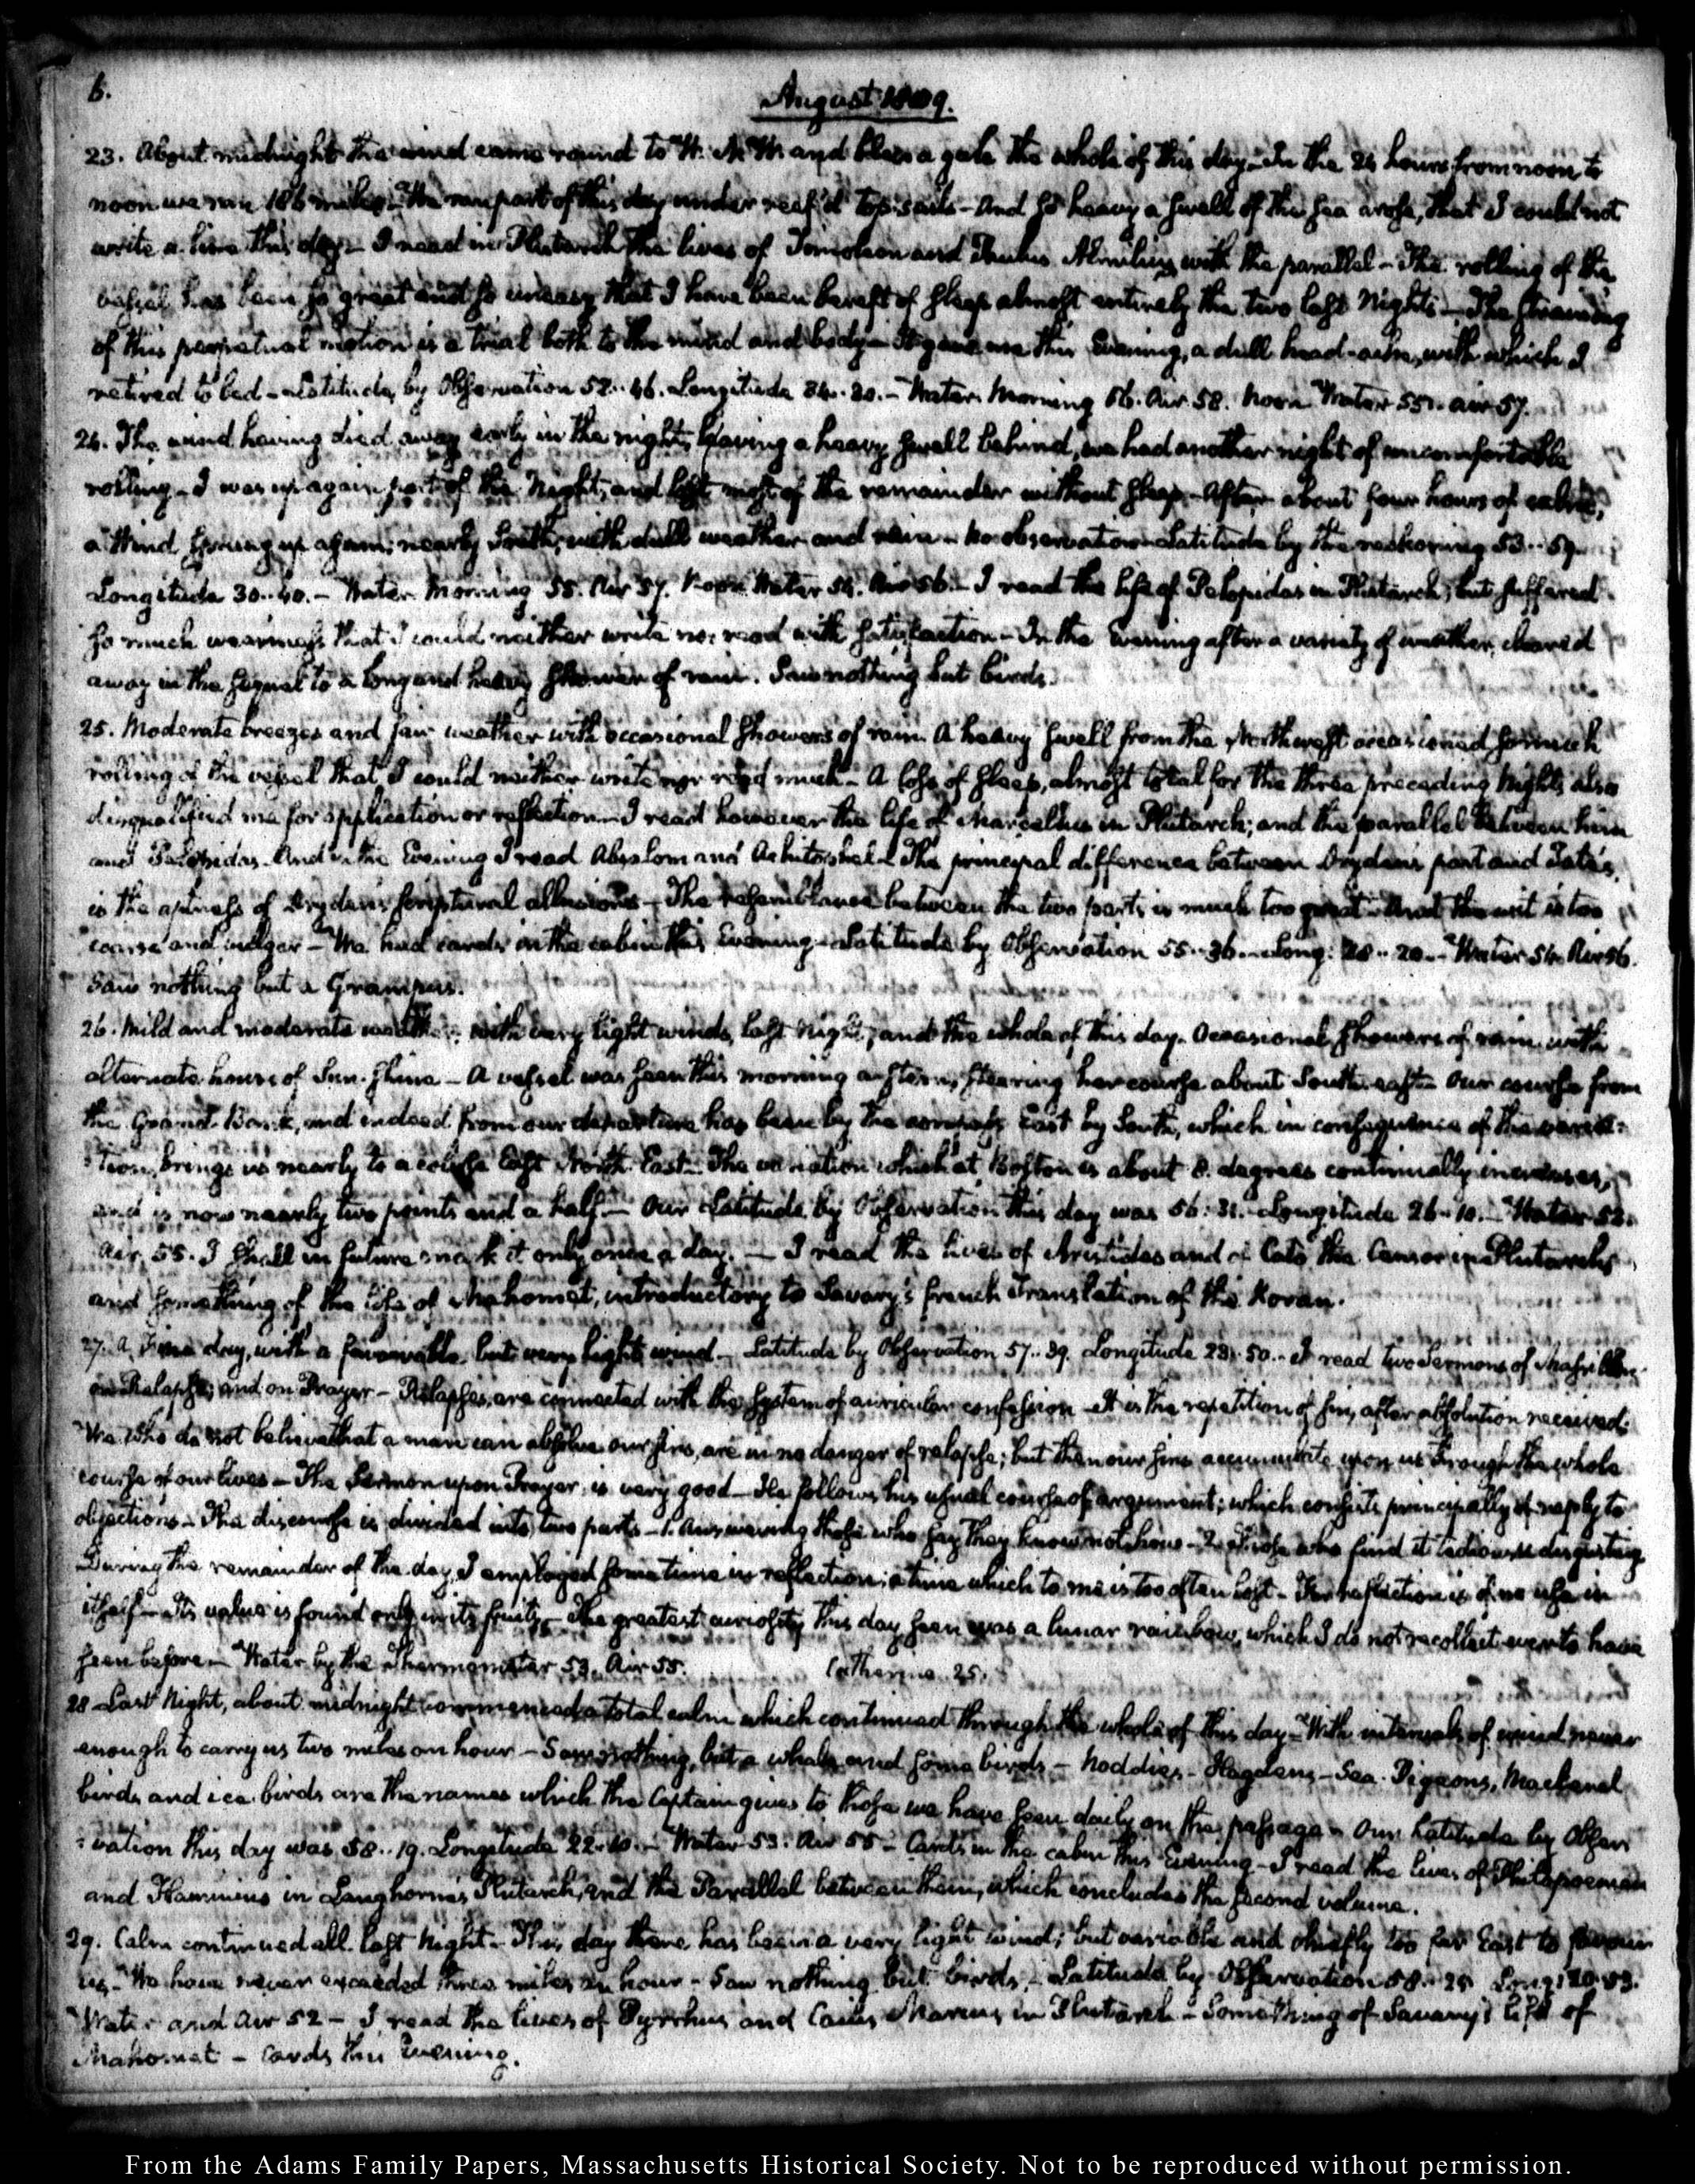 6.
August 1809.
23. About midnight the wind came round to W. N. W. and blew a gale the whole of this day. In the 24 hours from noon to
noon we run 186 miles. We run part of this day under reef'd top-sails - And so heavy a swell of the sea arose, that I could not
write a line this day - I read in Plutarch the lives of Timoleon and Paulus Æmilius with the parallel - The rolling of the
vessel has been so great and so uneasy that I have been bereft of sleep almost entirely the two last Nights - The straining
of this perpetual motion is a trial both to the mind and body - It gave me this Evening, a dull head-ache, with which I
retired to bed - Latitude, by Observation 52..46. Longitude 34..20. - Water Morning 56. Air 58. Noon Water 55. air 57.
24. The wind having died away early in the night, leaving a heavy swell behind, we had another night of uncomfortable
rolling - I was up again part of the Night, and left most of the remainder without sleep - After about four hours of calm,
a Wind sprung up again, nearly South, with dull weather and rain - No observation - Latitude by the reckoning 53..59.
Longitude 30..40. - Water Morning 55. Air 57. Noon Water 54. Air 56. - I read the life of Pelopidas in Plutarch; but suffered
so much weariness that I could neither write nor read with satisfaction - In the Evening after a variety of weather, cleared
away in the sequel to a long and heavy shower of rain. Saw nothing but birds.
25. Moderate breezes and fair weather with occasional showers of rain. A heavy swell from the Northwest occasioned so much
rolling of the vessel that I could neither write nor read much - A loss of sleep, almost total for the three preceding Nights also
disqualified me for application or reflection - I read however the life of Marcellus in Plutarch; and the parallel between him
and Pelopidas. And in the Evening I read Absalom and Achitophel - The principal difference between Dryden's part and Tate's,
is the aptness of Dryden's scriptural allusions - The resemblance between the two parts is much too great - And the wit is too
coarse and vulgar - We had cards in the cabin this Evening - Latitude by Observation 55..36. - Long: 28..20. - Water 54. Air 56.
Saw nothing but a Grampus.
26. Mild and moderate weather; with very light winds, last Night, and the whole of this day. Occasional showers of rain with
alternate hours of Sun-shine - A vessel was seen this morning astern, steering her course about South-east - Our course from
the Grand-Bank, and indeed from our departure has been by the compass East by South, which in consequence of the varia-
:tion, brings us nearly to a course East North East - The variation which at Boston is about 8. degrees continually increases,
and is now nearly two points and a half - Our Latitude by Observation this day was 56:31. - Longitude 26..10. - Water 52.
Air, 55. I shall in future mark it only once a day. - I read the lives of Aristides and of Cato the Censor in Plutarch;
and something of the life of Mahomet, introductory to Savary's french Translation of the Koran.
27. A fine day, with a favourable but very light wind - Latitude by Observation 57..39. Longitude 23..50. - I read two Sermons of Massillon
on Relapse; and on Prayer - Relapses are connected with the system of auricular confession - It is the repetition of sin, after absolution received.
We who do not believe that a man can absolve our sins, are in no danger of relapse; but then our sins accumulate upon us through the whole
course of our lives - The Sermon upon Prayer, is very good - He follows his usual course of argument; which consists principally of reply to
objections - The discourse is divided into two parts - 1. Answering those who say they know not how - 2. Those who find it tedious or disgusting
During the remainder of the day, I employed some time in reflection; a time which to me is too often lost - For reflection is of no use in
itself - Its value is found only in its fruits - The greatest curiosity this day seen was a lunar rainbow, which I do not recollect ever to have
seen before. - Water by the Thermometer 53. Air 55. Catherine. 25.
28 Last Night, about midnight commenced a total calm which continued through the whole of this day - With intervals of wind never
enough to carry us two miles an hour - Saw nothing, but a whale and some birds - Noddies - Hagdens - Sea-Pigeons, Mackarel
birds and ice birds are the names which the Captain gives to those we have seen daily on the passage - Our Latitude by Obser-
:vation this day was 58..19. Longitude 22..10. - Water 53. Air 55 - Cards in the cabin this Evening - I read the lives of Philopoemen
and Flaminius in Langhorne's Plutarch, and the Parallel between them, which concludes the second volume.
29. Calm continued all last Night - This day there has been a very light wind; but variable and chiefly too far East to favour
us. - We have never exceeded three miles an hour - Saw nothing but birds. - Latitude by Observation 58..25 Long: 20..53.
Water and Air 52 - I read the lives of Pyrrhus and Caius Marius in Plutarch - Something of Savary's life of
Mahomet - Cards this Evening.
From the Adams Family Papers, Massachusetts Historical Society. Not to be reproduced without permission.